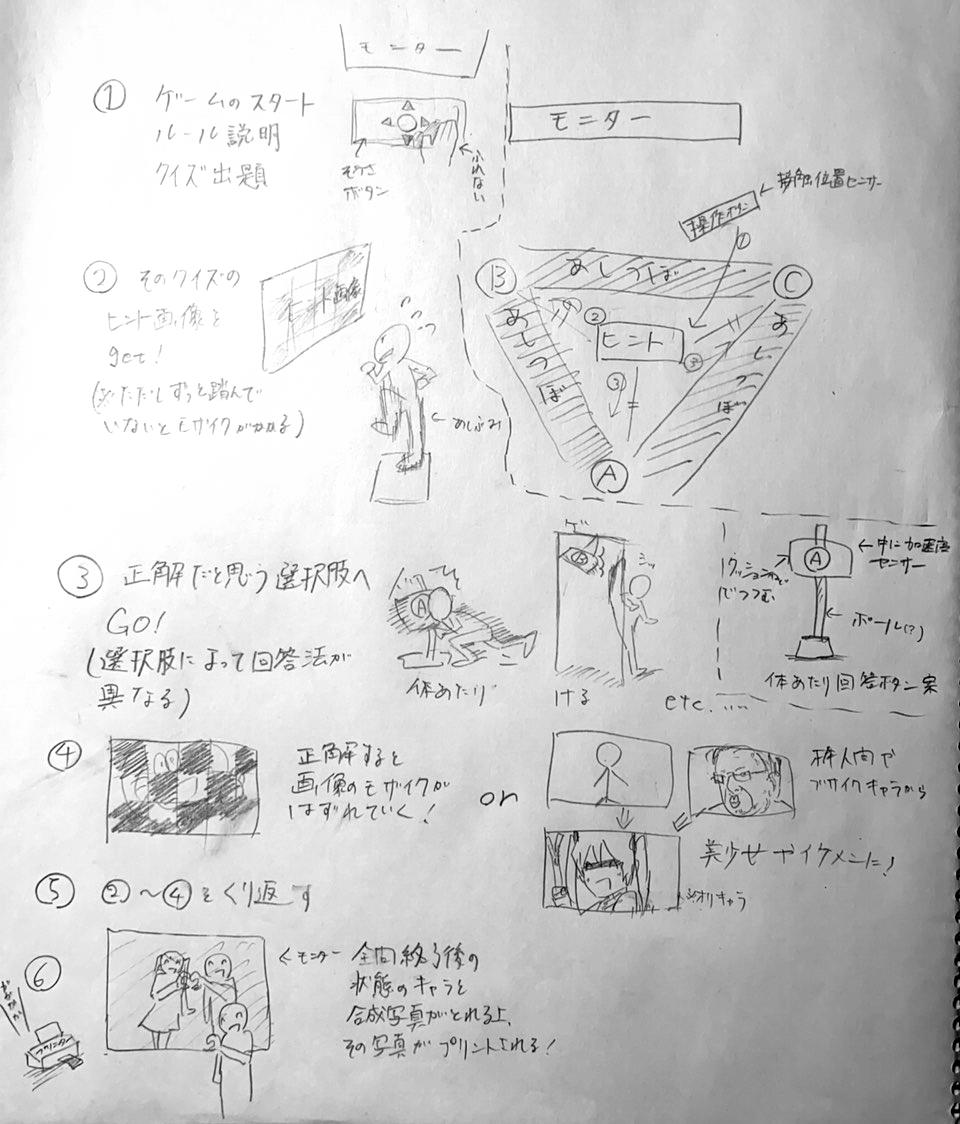 モニター
① ゲームのスタート
ルール説明
クイズ出題
そうさ
ボタン
ふれない
モニター
接触位置センサー
操作ボタン
①
② そのクイズの
ヒント画像を
get!
(※ただしずっと踏んで
いないとモザイクがかかる)
ヒント画像
あしぶみ
Ⓑ
あしつぼ
Ⓒ
あしつぼ
②
ヒント
③
あしつぼ
Ⓐ
③ 正解だと思う選択肢へ
GO!
(選択肢によって回答法が
異なる)
Ⓐ
体あたり
ける
etc.....
クッションなど
でつつむ
Ⓐ
中に加速度
センサー
ポール(?)
体あたり回答ボタン案
④
正解すると
画像のモザイクが
はずれていく!
or
棒人間や
ブサイクキャラから
美少女やイケメンに!
オリキャラ
⑤ ②〜④をくり返す
⑥
モニター
全問終了後の
状態のキャラと
合成写真がとれる上、
その写真がプリントされる!
プリンター